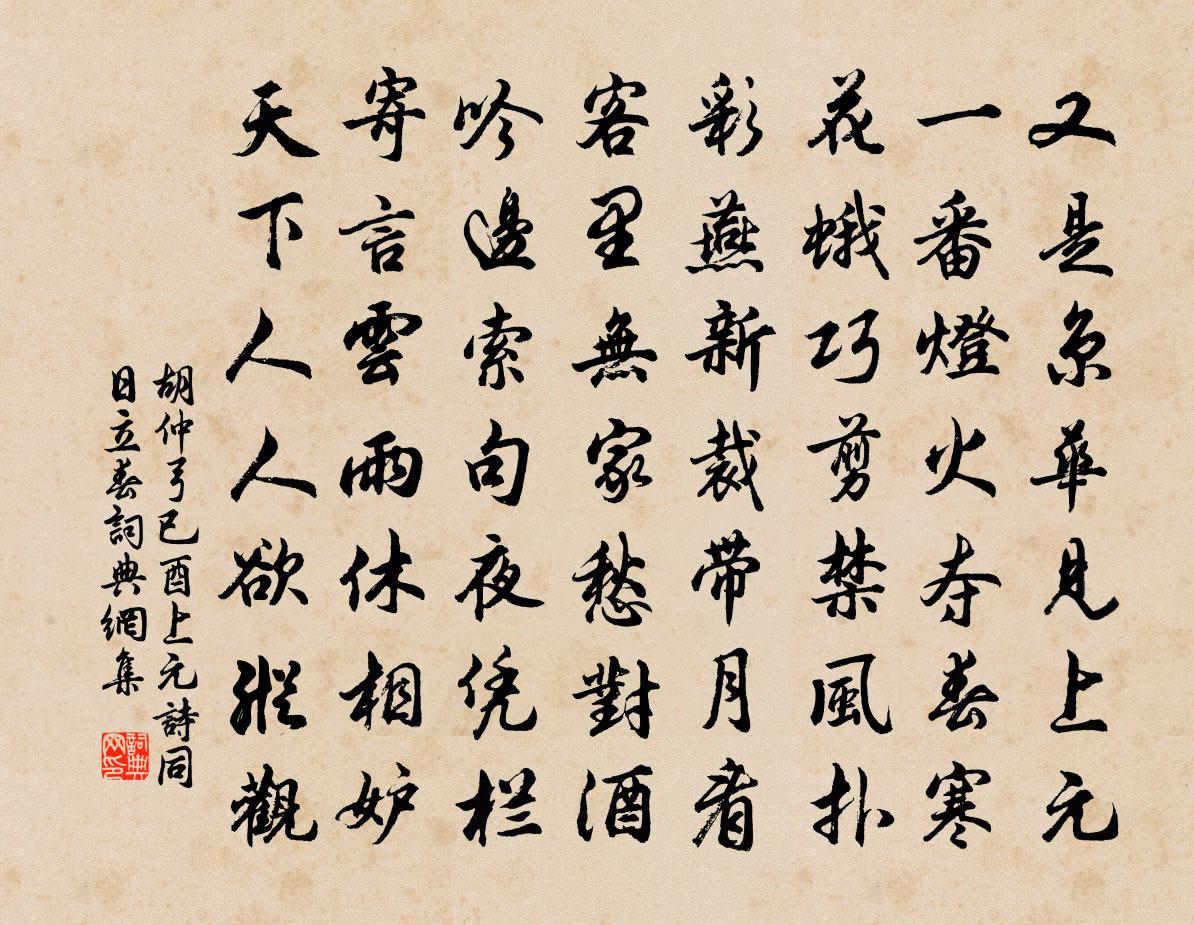 又是京華見上元
一番燈火夺春寒
花蛾巧剪禁風扑
彩燕新裁带月看
客里無家愁對酒
吟邊索句夜凭栏
寄言雲雨休相妒
天下人人欲縱觀
胡仲弓已酉上元詩同
日立春詞典網集
詞典网印